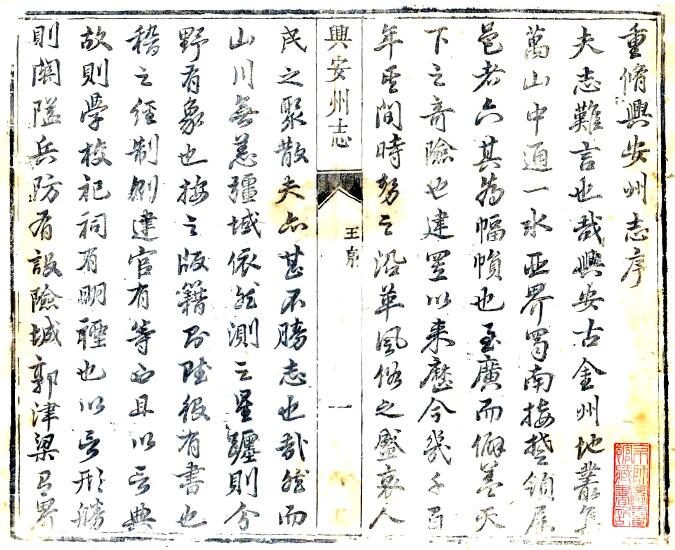 重脩興安州志序
夫志難言也哉興安古金州地叢
萬山中通一水西界蜀南接楚領屬
邑者六其為幅幀也至廣而僻蓋天
下之奇險也建置以来歷今幾千百
年其間時勢之沿革風俗之盛衰人
興安州志 王序 一
民之聚散夫亦甚不勝志也哉然而
山川無恙疆域依然測之星躔則分
野有象也按之版籍則賦役有書也
稽之經制則建官有等也且以言典
故則學校祀祠有明禋也以言形勝
則關隘兵防有設險城郭津梁有界
京師圖書
館藏書記